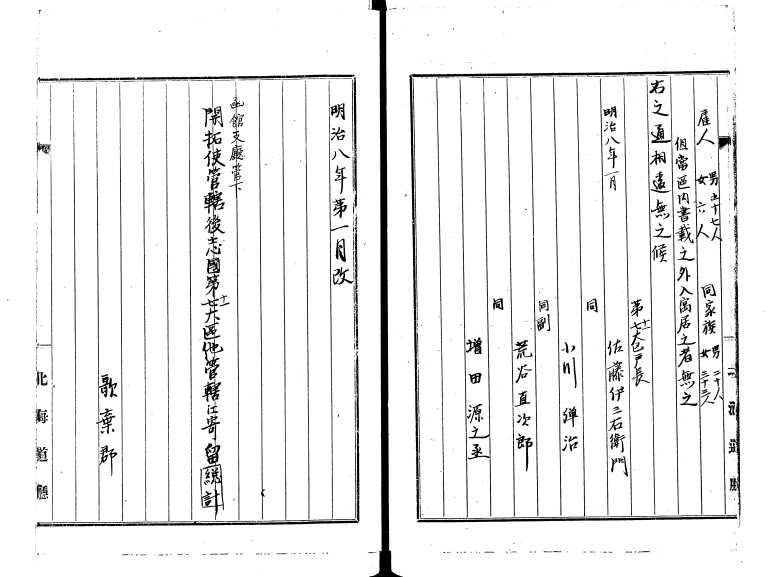 雇人 男五十七人 同家族 男二十人
女六人 女三十三人
但當區内書載之外入寓居之者無之
右之通相違無之候
明治八年一月
第十七大区戸長
佐藤伊三右衛門
同 小川 弾治
同副 荒谷直次郎
同 増田源之丞
北海道廳
明治八年第一月改
函館支廳管下
開拓使管轄後志國第十七大區他管轄江寄留總計
歌棄郡
北海道廳